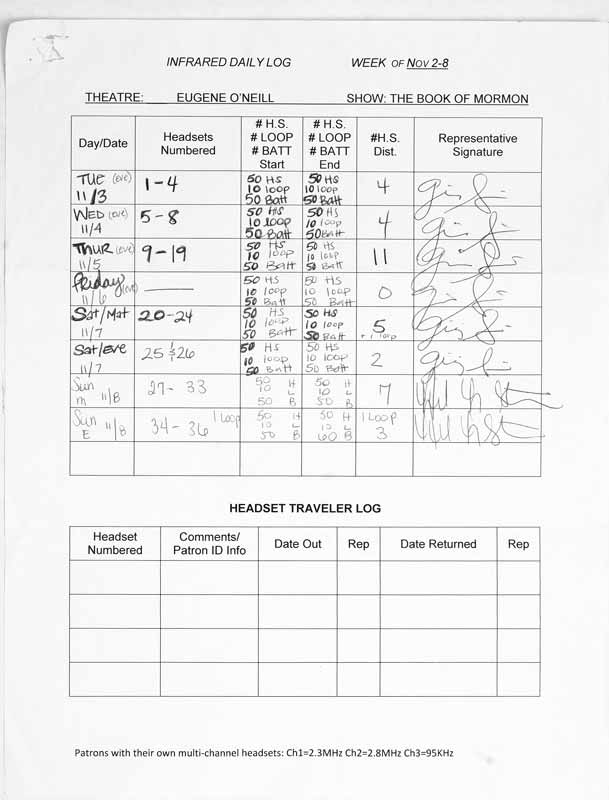 INFRARED DAILY LOG WEEK OF NOV 2-8
THEATRE: EUGENE O'NEILL SHOW: THE BOOK OF MORMON
Day/Date Headsets Numbered # H.S. # LOOP # BATT Start # H.S. # LOOP # BATT End #H.S. Dist. Representative Signature
TUE (eve) 11/3 1-4 50 HS 10 loop 50 Batt 50 HS 10 loop 50 Batt 4
WED (eve) 11/4 5-8 50 HS 10 loop 50 Batt 50 HS 10 loop 50 Batt 4
THUR (eve) 11/5 9-19 50 HS 10 loop 50 Batt 50 HS 10 loop 50 Batt 11
Friday (eve) 11/6 — 50 HS 10 loop 50 Batt 50 HS 10 loop 50 Batt 0
Sat/Mat 11/7 20-24 50 HS 10 loop 50 Batt 50 HS 10 loop 50 Batt 5
Sat/eve 11/7 25 & 26 50 HS 10 loop 50 Batt 50 HS 10 loop 50 Batt 2
Sun M 11/8 27-33 50 H 10 L 50 B 50 H 10 L 50 B 7
Sun E 11/8 34-36 1 Loop 50 H 10 L 50 B 50 H 10 L 60 B 1 LOOP 3
HEADSET TRAVELER LOG
Headset Numbered Comments/ Patron ID Info Date Out Rep Date Returned Rep
Patrons with their own multi-channel headsets: Ch1=2.3MHz Ch2=2.8MHz Ch3=95KHz